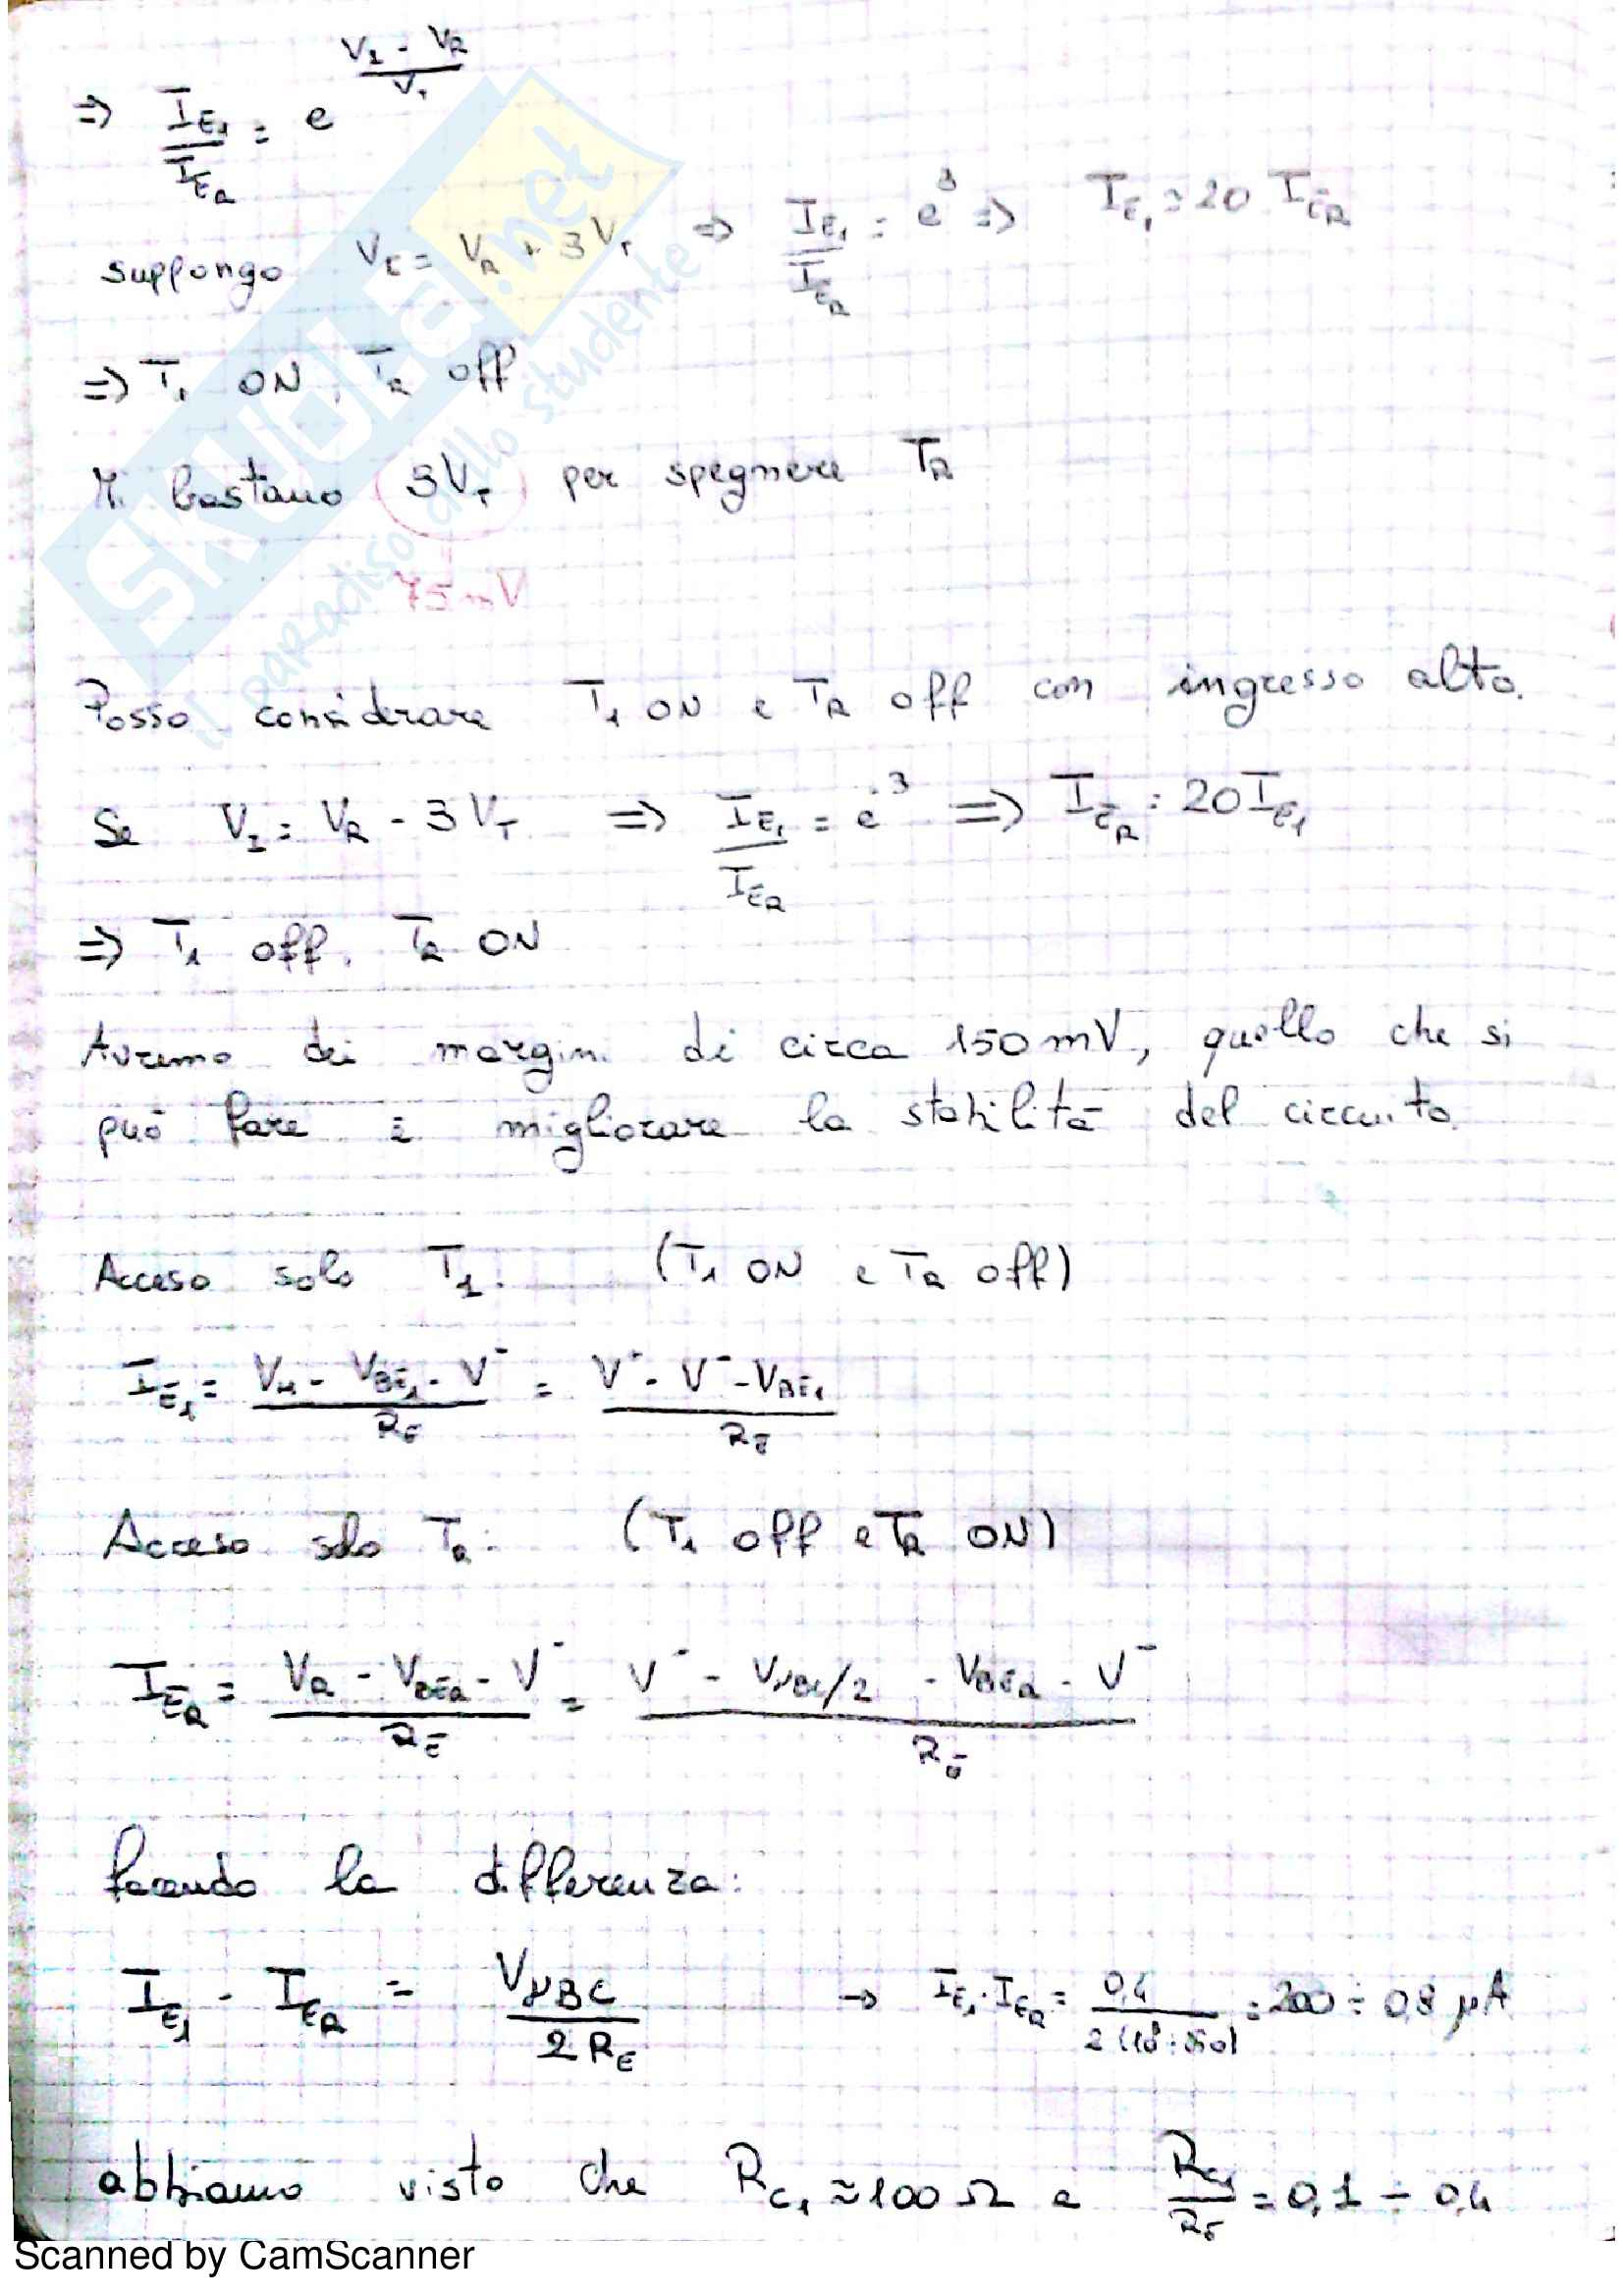 ⇒ I_E1 / I_ER = e^((V_I - V_R)/V_T)
suppongo V_I = V_R + 3V_T ⇒ I_E1 / I_ER = e^3 ⇒ I_E1 = 20 I_ER
⇒ T_1 ON, T_R off
Mi bastano 3V_T per spegnere T_R
75mV
Posso considerare T_1 ON e T_R off con ingresso alto.
Se V_I = V_R - 3V_T ⇒ I_E1 / I_ER = e^-3 ⇒ I_ER = 20 I_E1
⇒ T_1 off, T_R ON
Avremo dei margini di circa 150mV, quello che si
può fare è migliorare la stabilità del circuito.
Acceso solo T_1: (T_1 ON e T_R off)
I_E1 = (V_H - V_BE1 - V^-) / R_E = (V^+ - V^- - V_BE1) / R_E
Acceso solo T_R: (T_1 off e T_R ON)
I_ER = (V_R - V_BER - V^-) / R_E = (V^- - V_γBC/2 - V_BER - V^-) / R_E
facendo la differenza:
I_E1 - I_ER = V_γBC / 2R_E → I_E1 - I_ER = 0,4 / = 200 ÷ 0,8 μA
abbiamo visto che R_C1 ≈ 100 Ω e R_C1 / R_E = 0,1 ÷ 0,4
SKUOLA.net
il paradiso dello studente
Scanned by CamScanner